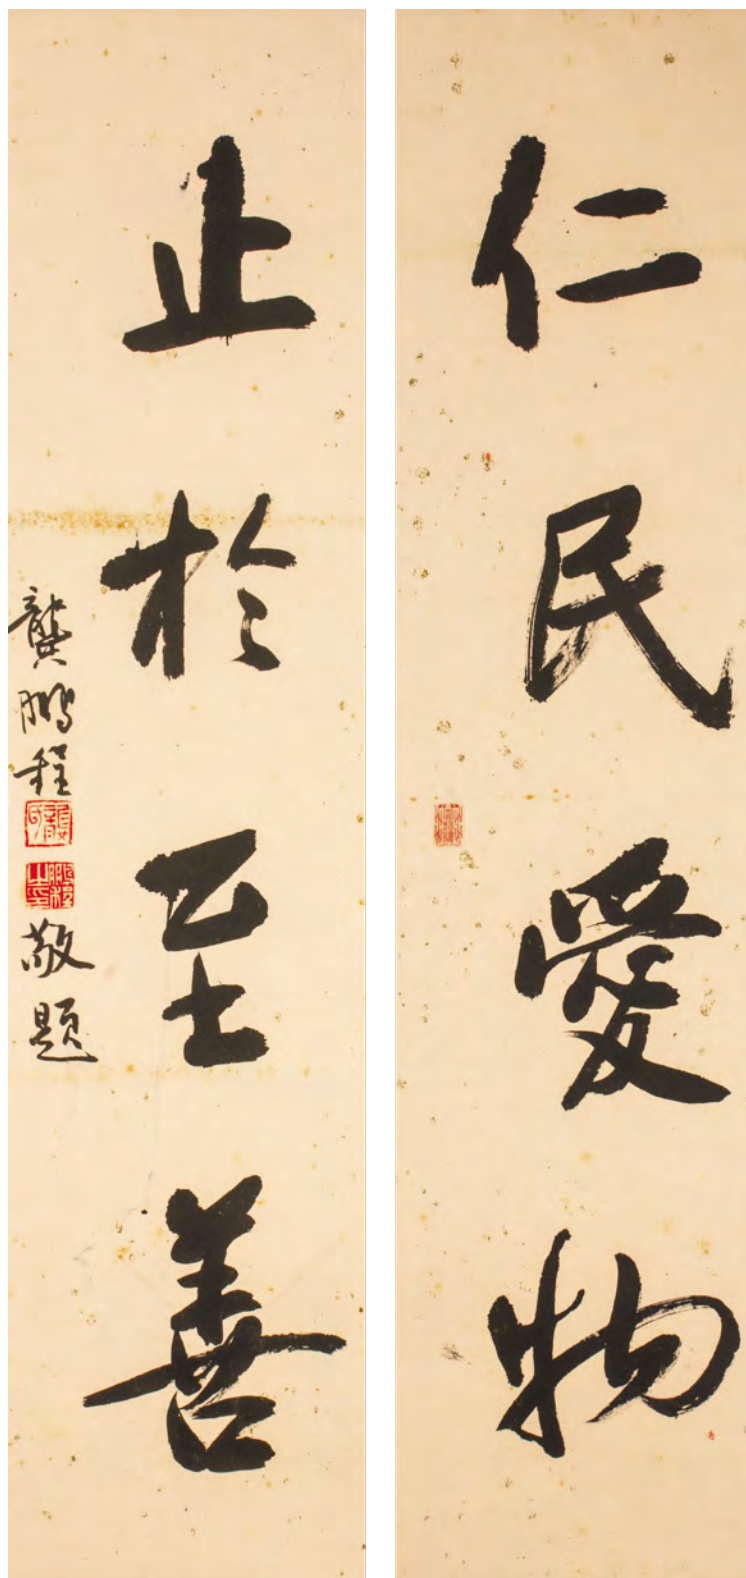 仁民愛物
止於至善
龔鵬程
敬題